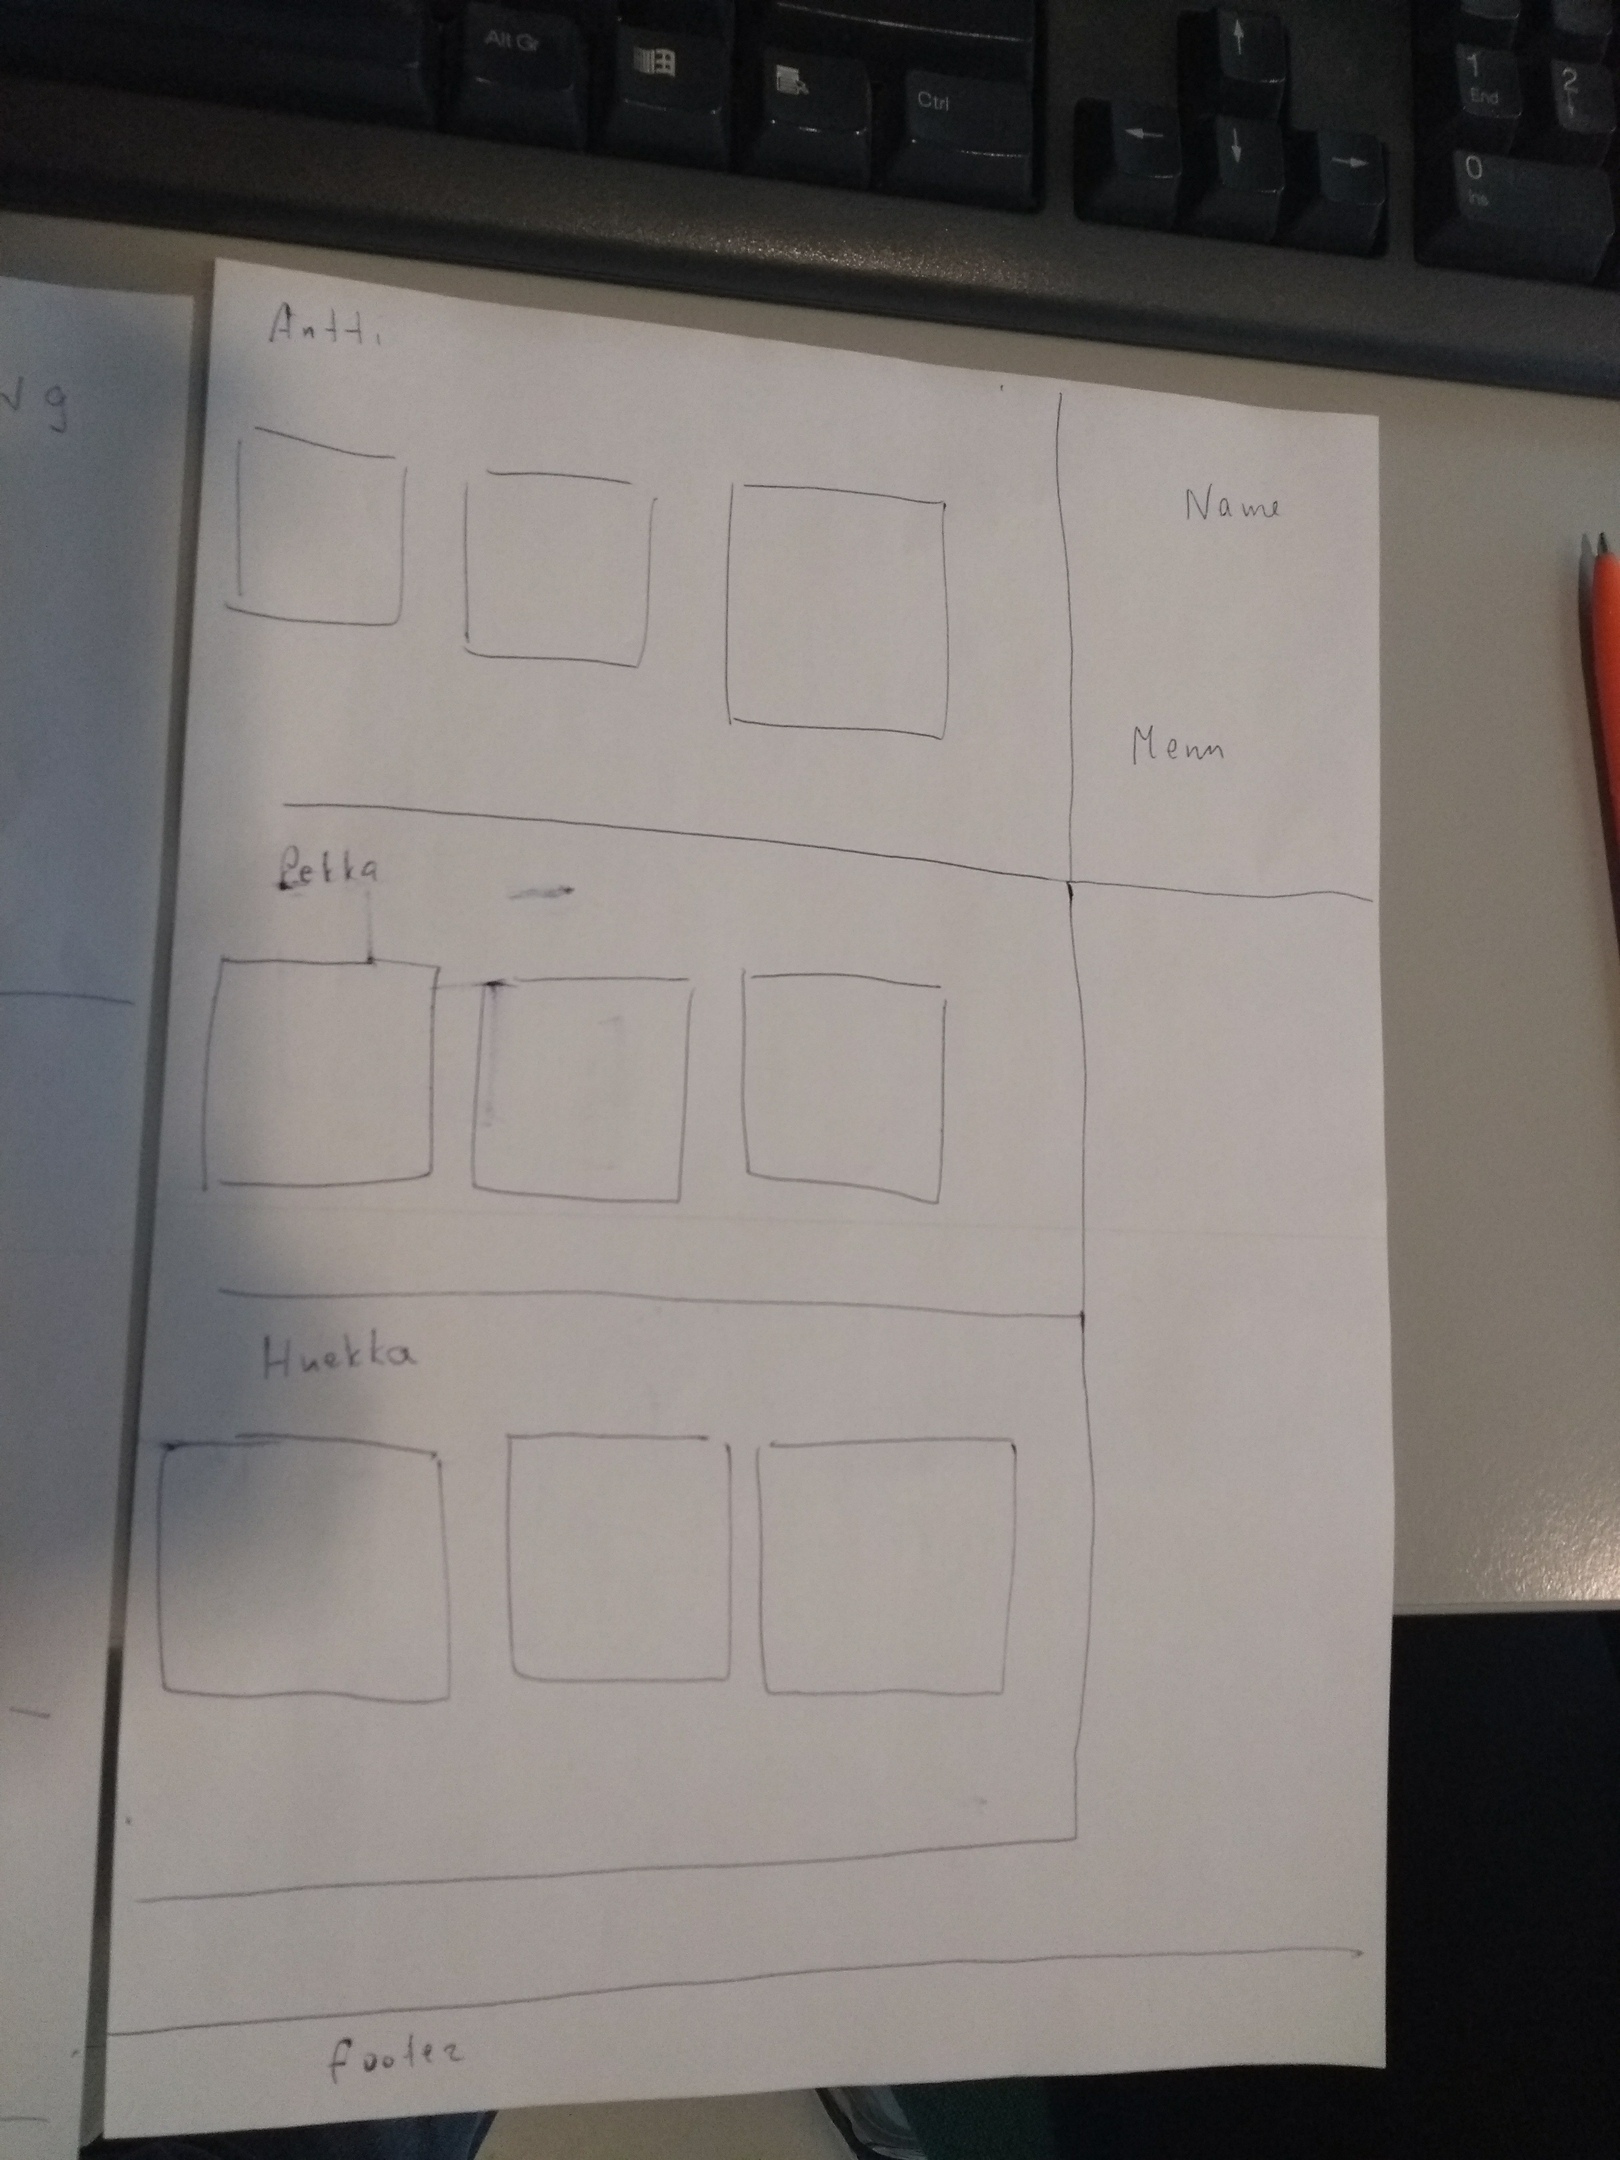 Alt Gr
Ctrl
1
End
2
0
Ins
Antti
Name
Menu
Pekka
Huekka
footer